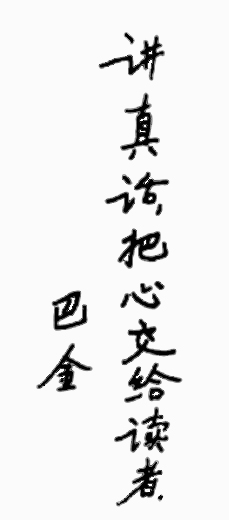 讲真话,把心交给读者.
巴金